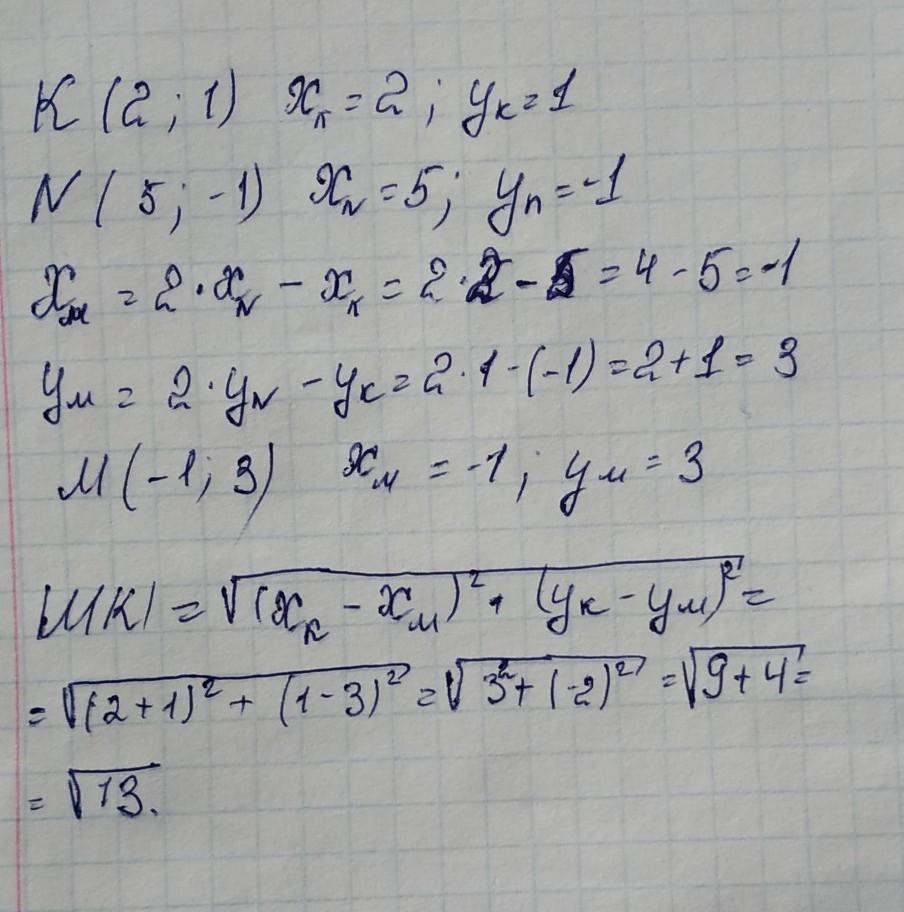 K (2 ; 1) x_к = 2 ; y_к = 1
N ( 5 ; -1) x_N = 5 ; y_n = -1
x_м = 2 · x_N - x_к = 2 · 2 - 5 = 4 - 5 = -1
y_м = 2 · y_N - y_к = 2 · 1 - (-1) = 2 + 1 = 3
M (-1 ; 3) x_м = -1 ; y_м = 3
|MK| = √((x_к - x_м)² + (y_к - y_м)²) =
= √((2+1)² + (1-3)²) = √(3² + (-2)²) = √(9+4) =
= √13.